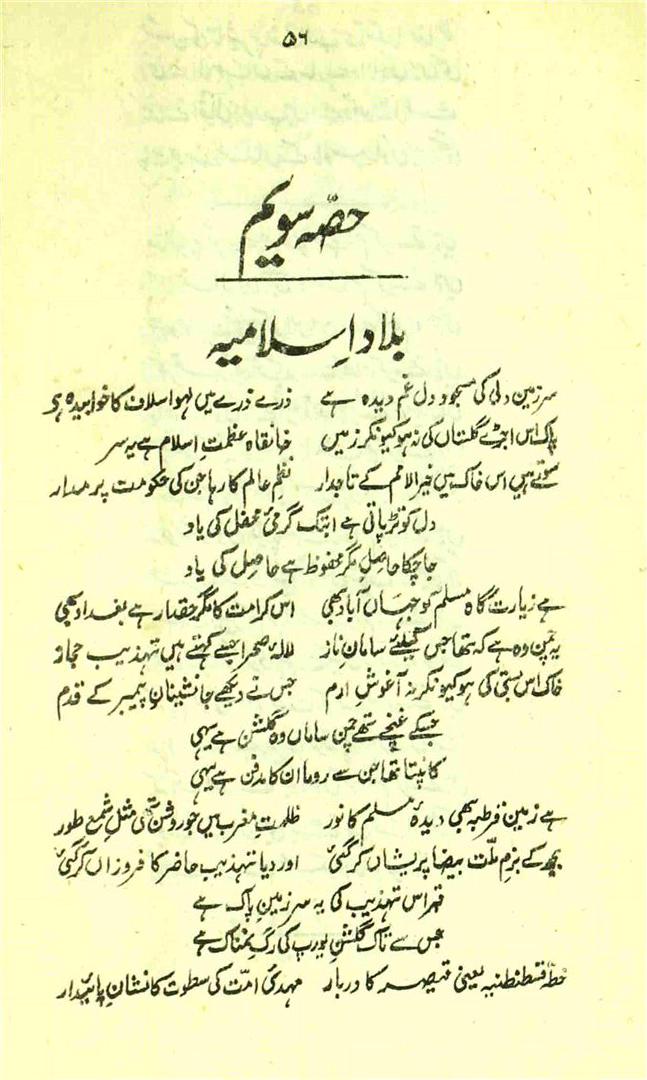 ۵۶
حصّہ سویم
بلادِ اسلامیہ
سرزمین دلی کی مسجودِ دل غم دیدہ ہے ذرے ذرے میں لہو اسلاف کا خوابیدہ ہے
پاک اس اجڑے گلستاں کی نہ ہو کیونکر زمیں خانقاہ عظمتِ اسلام ہے یہ سرزمیں
سوتے ہیں اس خاک میں خیر الامم کے تاجدار نظمِ عالم کا رہا جن کی حکومت پر مدار
دل کو تڑپاتی ہے ابتک گرمیٔ محفل کی یاد
جا چکا حاصل مگر محفوظ ہے حاصل کی یاد
ہے زیارت گاہ مسلم گو جہاں آباد بھی اس کرامت کا مگر حقدار ہے بغداد بھی
یہ چمن وہ ہے کہ تھا جس کیلئے سامانِ ناز لالۂ صحرا جسے کہتے ہیں تہذیب حجاز
خاک اس بستی کی ہو کیونکر نہ آغوشِ ارم جس نے دیکھے جانشینانِ پیمبر کے قدم
جسکے غنچے تھے چمن ساماں وہ گلشن ہے یہی
کانپتا تھا جن سے روما ان کا مدفن ہے یہی
ہے زمین قرطبہ بھی دیدۂ مسلم کا نور ظلمتِ مغرب میں جو روشن تھی مثلِ شمعِ طور
بجھ کے بزمِ ملّت بیضا پریشاں کر گئی اور دیا تہذیب حاضر کا فروزاں کر گئی
قبر اس تہذیب کی یہ سرزمینِ پاک ہے
جس سے تاکِ گلشنِ یورپ کی رگ نمناک ہے
خطۂ قسطنطنیہ یعنی قیصر کا دربار مہدیٔ امّت کی سطوت کا نشانِ پائیدار